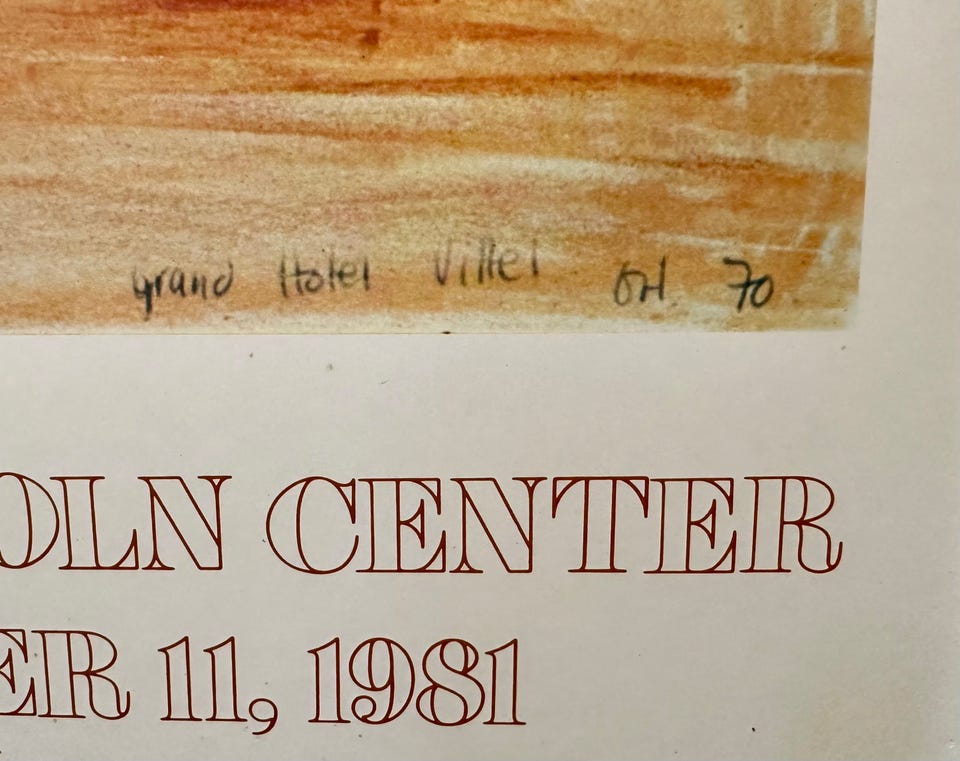 grand Hotel Vittel OH. 70
OLN CENTER
ER 11, 1981